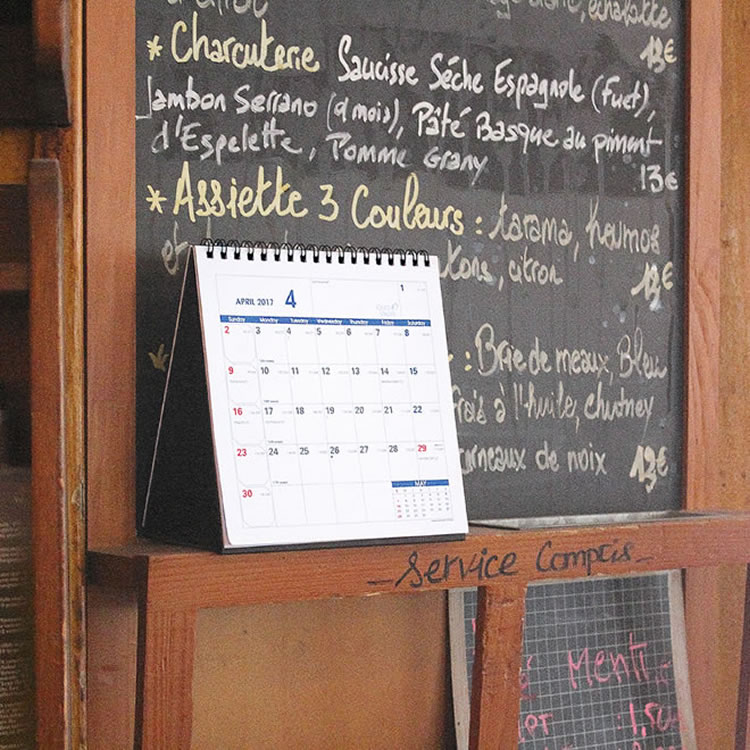 échalotte
13€
* Charcuterie Saucisse Séche Espagnole (Fuet),
Jambon Serrano (9 mois), Pâté Basque au piment
d'Espelette, Pomme Grany
13€
* Assiette 3 Couleurs : tarama, houmos
citron
13€
APRIL 2017 4
1
Sunday Monday Tuesday Wednesday Thursday Friday Saturday
2 3 4 5 6 7 8
9 10 11 12 13 14 15
16 17 18 19 20 21 22
23 24 25 26 27 28 29
30
MAY
: Brie de meaux, Bleu
frais à l'huile, chutney
de noix 13€
_Service Compris_
Menth
1,50